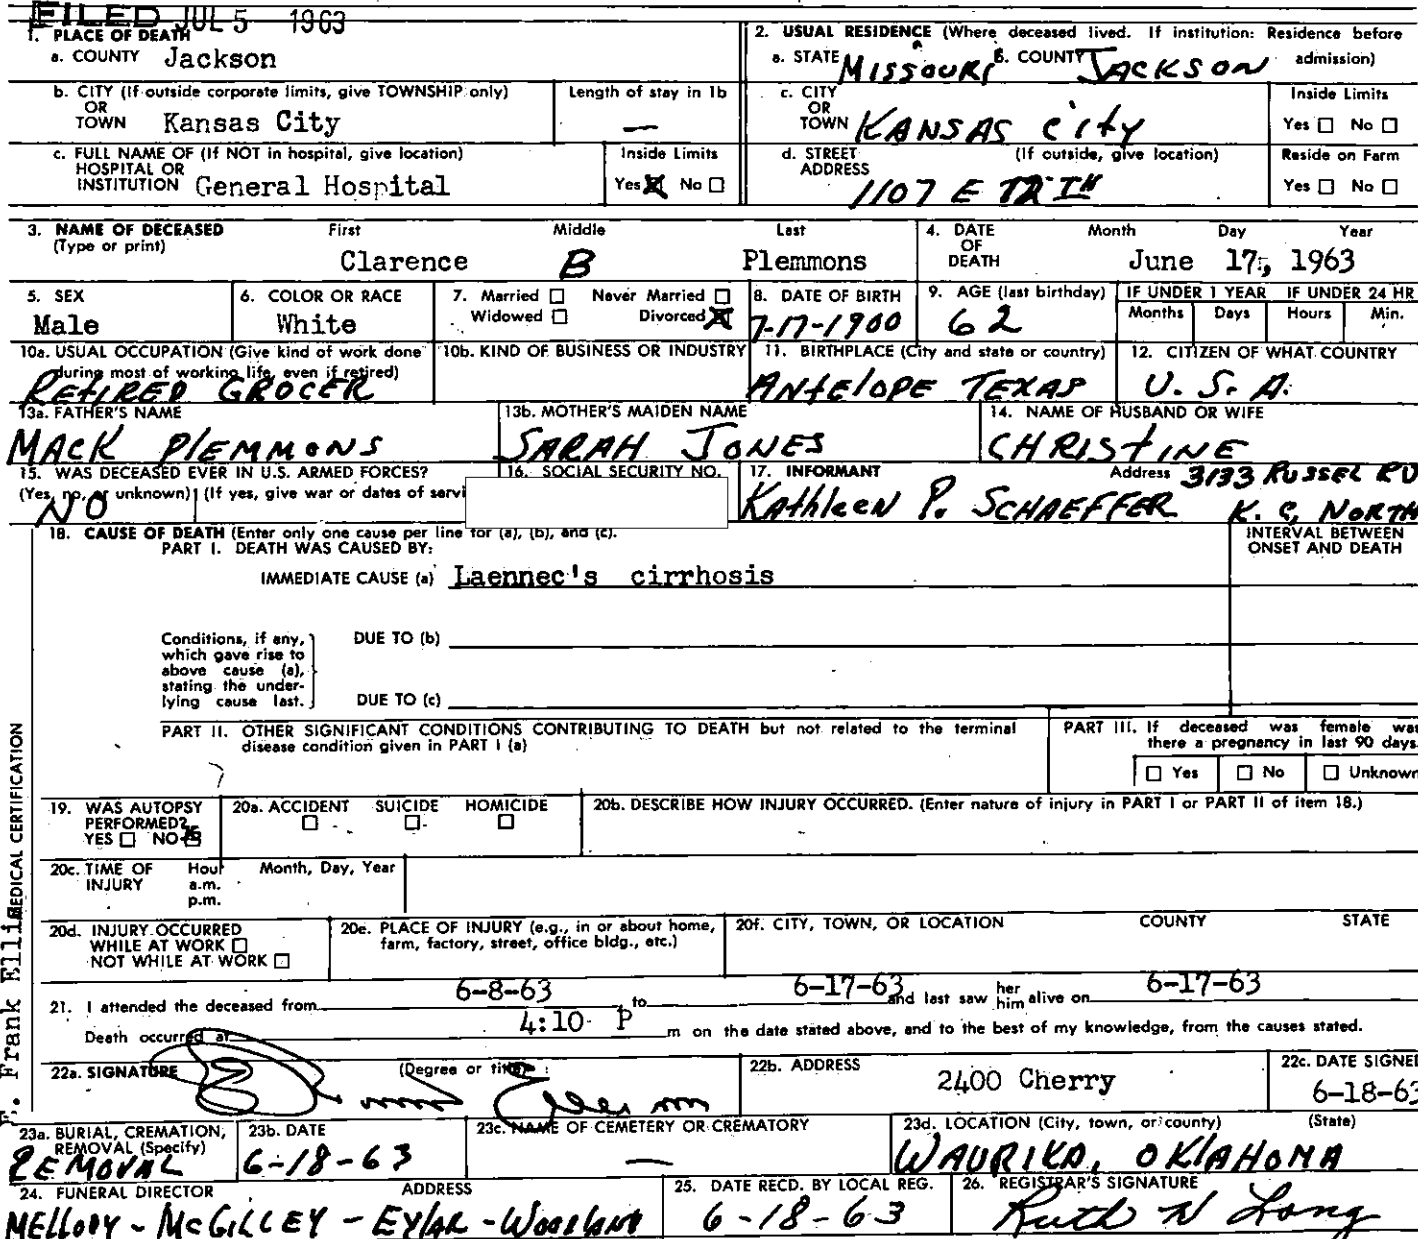 FILED JUL 5 1963
1. PLACE OF DEATH
a. COUNTY Jackson
2. USUAL RESIDENCE (Where deceased lived. If institution: Residence before admission)
a. STATE MISSOURI b. COUNTY JACKSON
b. CITY (If outside corporate limits, give TOWNSHIP only) OR TOWN Kansas City
Length of stay in 1b —
c. CITY OR TOWN KANSAS City
Inside Limits Yes ☐ No ☐
c. FULL NAME OF (If NOT in hospital, give location) HOSPITAL OR INSTITUTION General Hospital
Inside Limits Yes ☒ No ☐
d. STREET ADDRESS (If outside, give location) 1107 E
Reside on Farm Yes ☐ No ☐
3. NAME OF DECEASED (Type or print)
First Middle Last
Clarence B Plemmons
4. DATE OF DEATH Month Day Year
June 17, 1963
5. SEX Male
6. COLOR OR RACE White
7. Married ☐ Never Married ☐
Widowed ☐ Divorced ☒
8. DATE OF BIRTH 7-17-1900
9. AGE (last birthday) 62
IF UNDER 1 YEAR IF UNDER 24 HR
Months Days Hours Min.
10a. USUAL OCCUPATION (Give kind of work done during most of working life, even if retired)
RETIRED GROCER
10b. KIND OF BUSINESS OR INDUSTRY
11. BIRTHPLACE (City and state or country)
ANTELOPE TEXAS
12. CITIZEN OF WHAT COUNTRY
U. S. A.
13a. FATHER'S NAME
MACK PLEMMONS
13b. MOTHER'S MAIDEN NAME
SARAH JONES
14. NAME OF HUSBAND OR WIFE
CHRISTINE
15. WAS DECEASED EVER IN U.S. ARMED FORCES?
(Yes, no, or unknown) (If yes, give war or dates of servi
NO
16. SOCIAL SECURITY NO.
17. INFORMANT Address 3133 RUSSEL RD
Kathleen P. SCHAEFFER K. C, NORTH
18. CAUSE OF DEATH (Enter only one cause per line for (a), (b), and (c).
PART I. DEATH WAS CAUSED BY:
INTERVAL BETWEEN ONSET AND DEATH
IMMEDIATE CAUSE (a) Laennec's cirrhosis
Conditions, if any, which gave rise to above cause (a), stating the underlying cause last.
DUE TO (b)
DUE TO (c)
PART II. OTHER SIGNIFICANT CONDITIONS CONTRIBUTING TO DEATH but not related to the terminal disease condition given in PART I (a)
PART III. If deceased was female was there a pregnancy in last 90 days.
☐ Yes ☐ No ☐ Unknown
19. WAS AUTOPSY PERFORMED?
YES ☐ NO ☒
20a. ACCIDENT SUICIDE HOMICIDE
☐ ☐ ☐
20b. DESCRIBE HOW INJURY OCCURRED. (Enter nature of injury in PART I or PART II of item 18.)
20c. TIME OF INJURY Hour a.m. p.m. Month, Day, Year
20d. INJURY OCCURRED
WHILE AT WORK ☐
NOT WHILE AT WORK ☐
20e. PLACE OF INJURY (e.g., in or about home, farm, factory, street, office bldg., etc.)
20f. CITY, TOWN, OR LOCATION COUNTY STATE
21. I attended the deceased from 6-8-63 to 6-17-63 and last saw her him alive on 6-17-63
Death occurred at 4:10 P m on the date stated above, and to the best of my knowledge, from the causes stated.
22a. SIGNATURE (Degree or title)
22b. ADDRESS 2400 Cherry
22c. DATE SIGNED 6-18-63
23a. BURIAL, CREMATION, REMOVAL (Specify)
REMOVAL
23b. DATE
6-18-63
23c. NAME OF CEMETERY OR CREMATORY
—
23d. LOCATION (City, town, or county) (State)
WAURIKA, OKLAHOMA
24. FUNERAL DIRECTOR ADDRESS
MELLODY - McGILLEY - EYLAR - WOODLAND
25. DATE RECD. BY LOCAL REG.
6-18-63
26. REGISTRAR'S SIGNATURE
Ruth N Long
MEDICAL CERTIFICATION
Frank Ellis